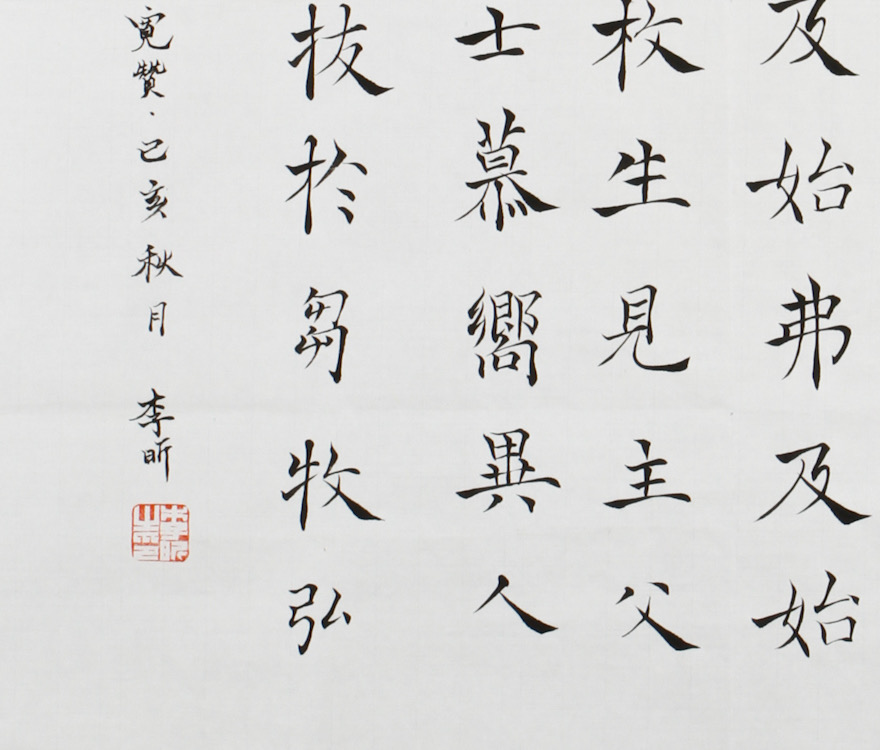 及始弗及始
枚生見主父
士慕嚮異人
拔於芻牧弘
寬贊、己亥秋月 李昕